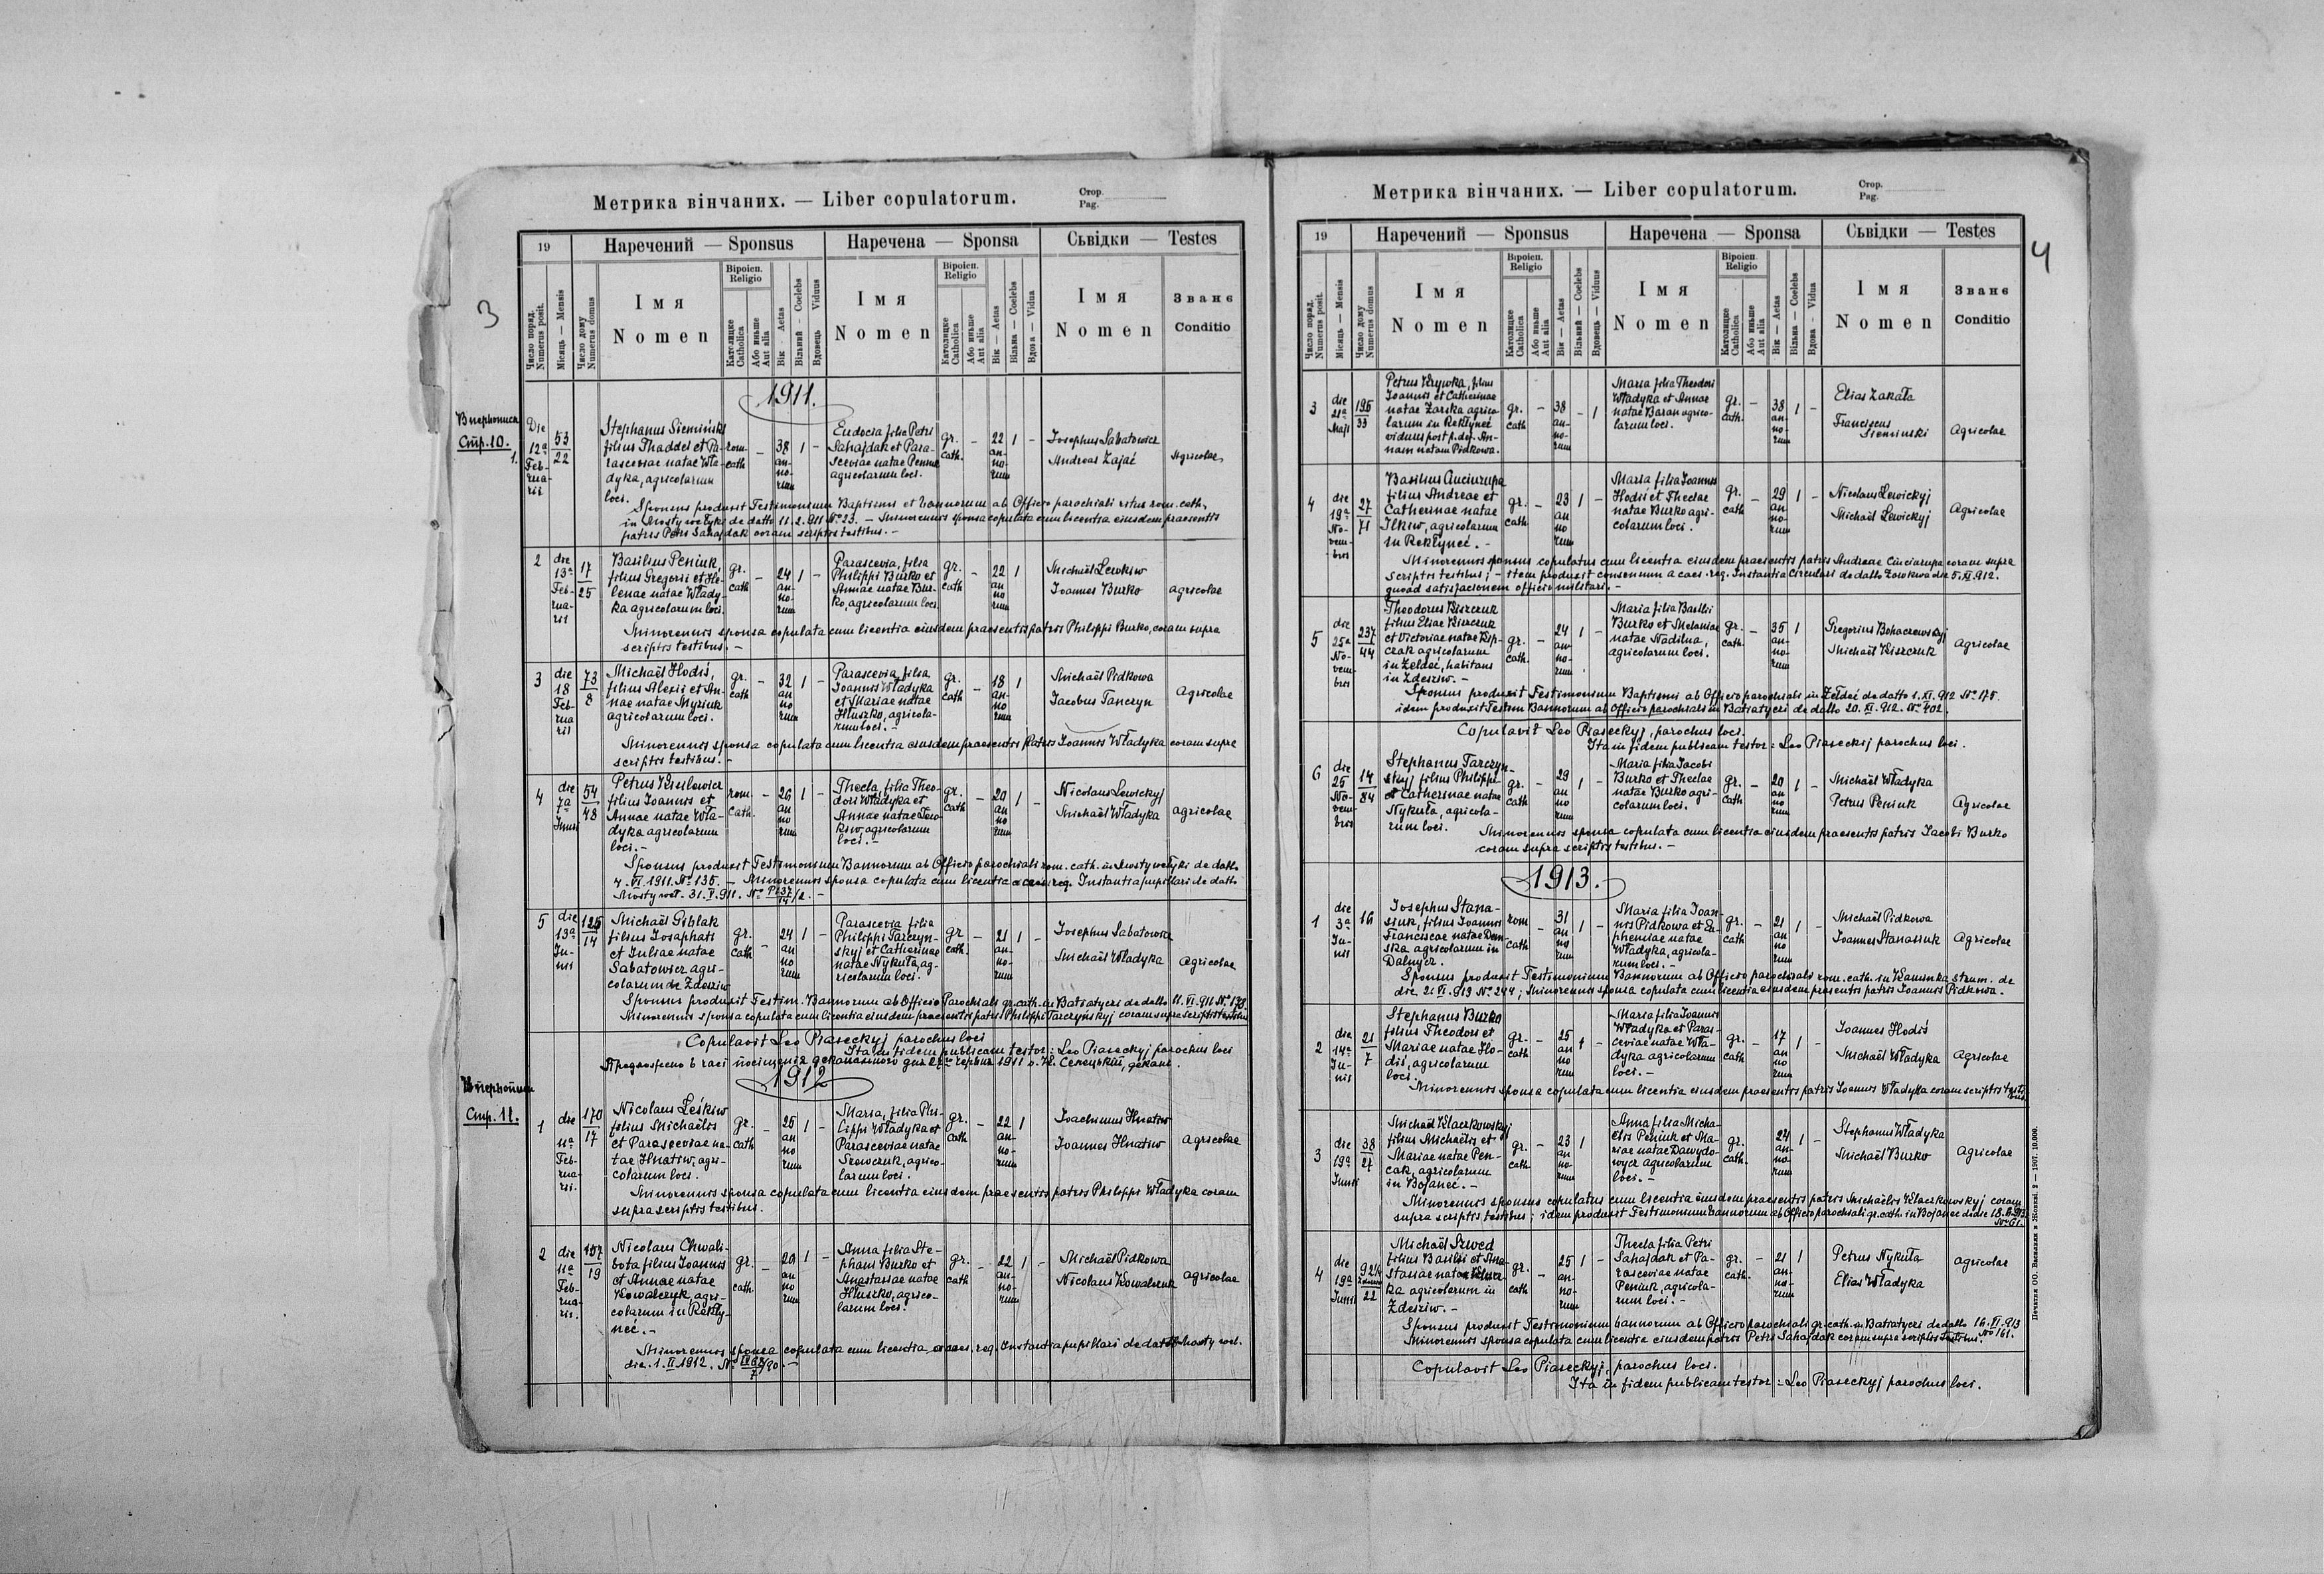 Метрика вінчаних. — Liber copulatorum.
Стор.
Pag.
3
19
Наречений — Sponsus
Наречена — Sponsa
Сьвідки — Testes
Число поряд.
Numerus posit.
Місяць — Mensis
Число дому
Numerus domus
Імя
Nomen
Віроісп.
Religio
Католицке
Catholica
Або иньше
Aut alia
Вік - Aetas
Вільний — Coelebs
Вдовець - Viduus
Імя
Nomen
Віроісп.
Religio
Католицке
Catholica
Або иньше
Aut alia
Вік — Aetas
Вільна — Coelebs
Вдова — Vidua
Імя
Nomen
Званє
Conditio
1911.
Стр. 10.
1.
Die 12ª Februarii
53/22
Stephanus Siemiński
filius Thaddei et Pa-
rasceviae natae Wła-
dyka, agricolarum
loci.
rom. cath
–
38 annorum
1
–
Eudocia filia Petri
Sahajdak et Para-
sceviae natae Peniuk
agricolarum loci.
gr. cath.
–
22 annorum
1
–
Josephus Sabatowicz
Andreas Zając
Agricolae
Sponsus produxit Testimonium Baptismi et bannorum ab Officio parochiali ritus rom. cath.
in Mosty wełyki de datto 11.2.911 Nº 23. – Minorennis sponsa copulata cum licentia eiusdem praesentis
patris Petri Sahajdak coram scriptis testibus. –
2
die 13ª Februarii
17/25
Basilius Peniuk,
filius Gregorii et He-
lenae natae Włady-
ka agricolarum loci.
gr. cath
–
24 annorum
1
–
Parascevia, filia
Philippi Burko et
Annae natae Bur-
ko, agricolarum loci
gr. cath
–
22 annorum
1
Michaël Lewkiw
Joannes Burko
agricolae
Minorennis sponsa copulata cum licentia eiusdem praesentis patris Philippi Burko, coram supra
scriptis testibus. –
3
die 18 Februarii
73/8
Michaël Hodiś,
filius Alexii et An-
nae natae Myziuk
agricolarum loci.
gr. cath
–
32 annorum
1
–
Parascevia, filia
Joannis Władyka
et Mariae natae
Hłuszko, agricola-
rum loci. –
gr. cath
–
18 annorum
1
Michaël Pidkowa
Jacobus Tanczyn
Agricolae
Minorennis sponsa copulata cum licentia eiusdem praesentis patris Joannis Władyka coram supra
scriptis testibus. –
4
die 7ª Junii
54/48
Petrus Kisilewicz
filius Joannis et
Annae natae Wła-
dyka agricolarum
loci. –
rom. cath.
–
26 annorum
1
–
Thecla, filia Theo-
dori Władyka et
Annae natae Lew-
kiw, agricolarum
loci. –
gr. cath
–
20 annorum
1
–
Nicolaus Lewickyj
Michaël Władyka
agricolae
Sponsus produxit Testimonium Bannorum ab Officio parochiali rom. cath. in Mosty wełyki de datto
4. VI. 1911. Nº 135. – Minorennis sponsa copulata cum licentia a caes. reg. Instantia pupillari de datto
Mosty wel. 31. V. 911. Nº
5
die 13ª Junii
125/14
Michaël Giblak
filius Josaphati
et Juliae natae
Sabatowicz agri-
colarum de Zdesziw
gr. cath
–
24 annorum
1
–
Parascevia filia
Philippi Tarczyn-
skyj et Catherinae
natae Nykuła, ag-
ricolarum loci.
gr cath.
–
21 annorum
1
–
Josephus Sabatowicz
Michaël Władyka
agricolae
Sponsus produxit Testim. Bannorum ab Officio Parochiali gr. cath. in Batiatyczi de datto 11. VI. 911 Nº 173.
Minorennis sponsa copulata cum licentia eiusdem praesentis patris Philippi Tarczynskyj coram supra scriptis testibus
Copulavit Leo Piaseckyj, parochus loci
Ita in fidem publicam testor: Leo Piaseckyj parochus loci
1912
Стр. 11.
1
die 11ª Februarii.
170/17
Nicolaus Leśkiw
filius Michaëlis
et Parasceviae na-
tae Hnatiw, agri-
colarum loci.
gr. cath
–
25 annorum
1
–
Maria, filia Phi-
lippi Władyka et
Parasceviae natae
Szewczuk, agrico-
larum loci.
gr. cath
–
22 annorum
1
–
Joachimus Hnatiw
Joannes Hnatiw
agricolae
Minorennis sponsa copulata cum licentia eiusdem praesentis patris Philippi Władyka coram
supra scriptis testibus.
2
die 11ª Februarii.
107/19
Nicolaus Chwali-
bota filius Joannis
et Annae natae
Kowalczyk, agri-
colarum in Rekły-
neć. –
gr. cath.
–
20 annorum
1
–
Anna filia Ste-
phani Burko et
Anastasiae natae
Hłuszko, agrico-
larum loci.
gr. cath
–
22 annorum
1
–
Michaël Pidkowa
Nicolaus Kowalczuk
agricolae
Minorennis sponsa copulata cum licentia a caes. reg. Instantia pupillari de datto Mosty wel.
die. 1. II. 1912. Nº
Метрика вінчаних. — Liber copulatorum.
Стор.
Pag.
4
19
Наречений — Sponsus
Наречена — Sponsa
Сьвідки — Testes
Число поряд.
Numerus posit.
Місяць — Mensis
Число дому
Numerus domus
Імя
Nomen
Віроісп.
Religio
Католицке
Catholica
Або иньше
Aut alia
Вік — Aetas
Вільний — Coelebs
Вдовець — Viduus
Імя
Nomen
Віроісп.
Religio
Католицке
Catholica
Або иньше
Aut alia
Вік — Aetas
Вільна — Coelebs
Вдова — Vidua
Імя
Nomen
Званє
Conditio
3
die 21ª Maji
196/33
Petrus Krywka, filius
Joannis et Catherinae
natae Zarska agrico-
larum in Rekłyneć
viduus post p. def. An-
nam natam Pidkowa.
gr. cath
–
38 annorum
–
1
Maria filia Theodori
Władyka et Annae
natae Baran agrico-
larum loci.
gr. cath.
–
38 annorum
1
–
Elias Zakała
Franciscus
Siemiński
Agricolae
4
die 19ª Novembris
27/71
Basilius Ciuciurupa
filius Andreae et
Catherinae natae
Ilkiw, agricolarum
in Rekłyneć. –
gr. cath
–
23 annorum
1
–
Maria filia Joannis
Hodiś et Theclae
natae Burko agri-
colarum loci.
gr. cath
–
29 annorum
1
–
Nicolaus Lewickyj
Michaël Lewickyj
Agricolae
Minorennis sponsus copulatus cum licentia eiusdem praesentis patris Andreae Ciuciurupa coram supra
scriptis testibus; – item produxit consensum a caes. reg. Instantia Circulari de datto Żowkwa die 5. XI. 912.
quoad satisfacionem officio militari. –
5
die 25ª Novembris
237/44
Theodorus Kiszczuk
filius Eliae Kiszczuk
et Victoriae natae Rip-
czak agricolarum
in Żeldeć, habitans
in Zdesziw. –
gr. cath
–
24 annorum
1
–
Maria filia Basilii
Burko et Melaniae
natae Nadilna,
agricolarum loci.
gr. cath.
–
35 annorum
1
Gregorius Bohaczewskyj
Michaël Kiszczuk
agricolae
Sponsus produxit Testimonium Baptismi ab Officio parochiali in Żeldeć de datto 1. XI. 912 Nº 175.
idem produxit Testim Bannorum ab Officio parochiali in Batiatyczi de datto 20. XI. 912. Nº 402.
Copulavit Leo Piaseckyj, parochus loci.
Ita in fidem publicam testor: Leo Piaseckij parochus loci.
6
die 25 Novembris
14/84
Stephanus Tarczyn-
skyj filius Philippi
et Catherinae natae
Nykuła, agricola-
rum loci.
gr. cath
–
29 annorum
1
–
Maria filia Jacobi
Burko et Theclae
natae Burko agri-
colarum loci.
gr. cath
–
20 annorum
1
–
Michaël Władyka
Petrus Peniuk
Agricolae
Minorennis sponsa copulata cum licentia eiusdem praesentis patris Jacobi Burko
coram supra scriptis testibus. –
1913.
1
die 3ª Junii
16
Josephus Stana-
siuk, filius Joannis
Franciscae natae Dem-
ska agricolarum in
Dalnycz.
rom cath
–
31 annorum
1
–
Maria filia Joan-
nis Pidkowa et Eu-
phemiae natae
Władyka, agricola-
rum loci. –
gr. cath
–
21 annorum
1
–
Michaël Pidkowa
Joannes Stanasiuk
Agricolae
Sponsus produxit Testimonium Bannorum ab Officio parochiali rom. cath. in Kamionka strum. de
die 2. VI. 913 Nº 244; Minorennis sponsa copulata cum licentia eiusdem praesentis patris Joannis Pidkowa.
2
die 14ª Junii
21/7
Stephanus Burko
filius Theodori et
Mariae natae Ho-
diś, agricolarum
loci.
gr. cath
–
25 annorum
1
–
Maria filia Joannis
Władyka et Paras-
ceviae natae Wła-
dyka agricolarum
loci. –
gr. cath
–
17 annorum
1
–
Joannes Hodiś
Michaël Władyka
agricolae
Minorennis sponsa copulata cum licentia eiusdem praesentis patris Joannis Władyka coram scriptis testibus.
3
die 19ª Junii
38/27
Michaël Klaczkowskyj
filius Michaëlis et
Mariae natae Pen-
cak, agricolarum
in Bojaneć. –
gr. cath
–
23 annorum
1
–
Anna filia Micha-
elis Peniuk et Ma-
riae natae Dawydo-
wycz agricolarum
loci. –
gr. cath.
–
24 annorum
1
–
Stephanus Władyka
Michaël Burko
Agricolae
Minorennis sponsus copulatus cum licentia eiusdem praesentis patris Michaëlis Klaczkowskyj coram
supra scriptis testibus; idem produxit Testimonium bannorum ab Officio parochiali gr. cath. in Bojanec de die 18. VI. 913.
Nº 61.
4
die 19ª Junii
22
Michaël Szwed
filius Basilii et Ana-
stasiae natae
ka agricolarum in
Zdesziw. –
gr. cath
–
25 annorum
1
–
Thecla filia Petri
Sahajdak et Pa-
rasceviae natae
Peniuk, agricola-
rum loci. –
gr. cath.
–
21 annorum
1
Petrus Nykuła
Elias Władyka
agricolae
Sponsus produxit Testimonium bannorum ab Officio parochiali gr. cath. in Batiatyczi de datto 16. VI. 913
Nº 161.
Minorennis sponsa copulata cum licentia eiusdem patris Petri Sahajdak coram supra scriptis testibus.
Copulavit Leo Piaseckyj, parochus loci.
Ita in fidem publicam testor: Leo Piaseckyj parochus loci.
Печатня ОО. Василиян в Жовкві. 2 — 1907. 10.000.